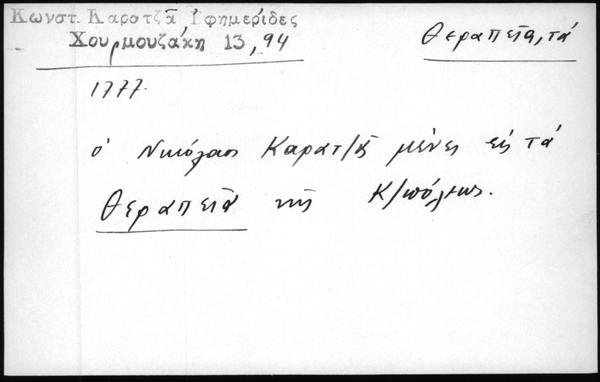 Κωνστ. Καρατζᾶ Ἐφημερίδες
Χουρμουζάκη 13, 94
Θεραπειᾶ, τά
1777.
ὁ Νικόλαος Καρατζᾶς μένει εἰς τά
Θεραπειᾶ τῆς Κ/πόλεως.